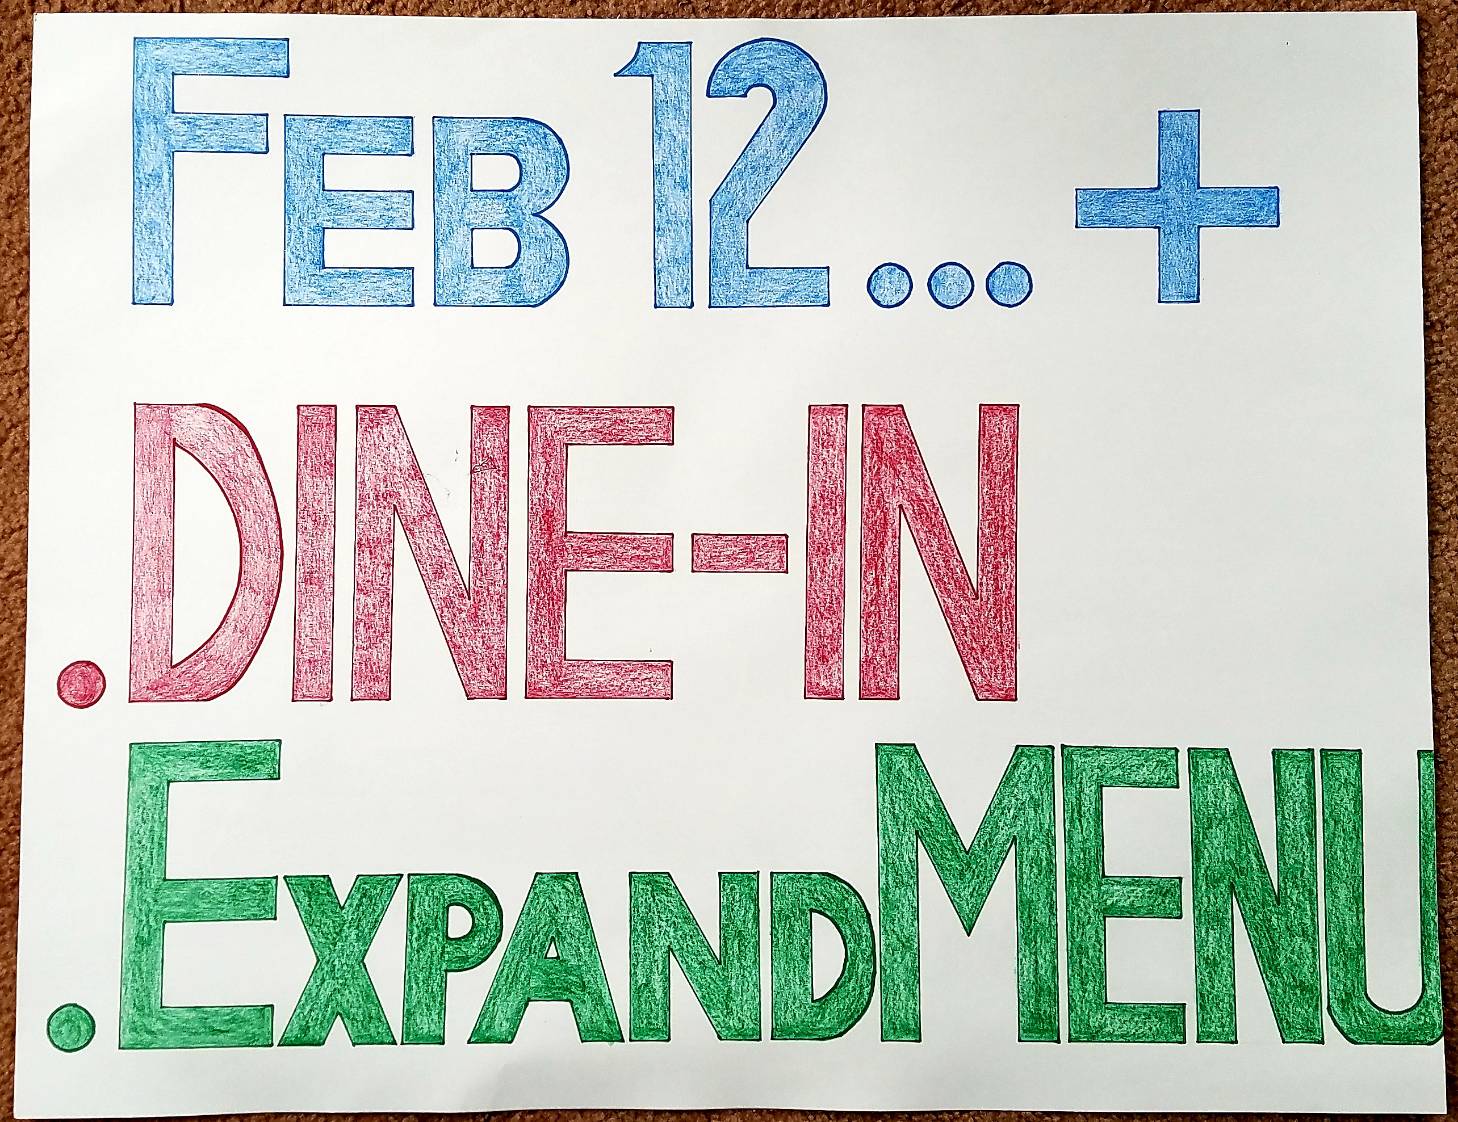 FEB 12... +
.DINE-IN
.EXPAND MENU